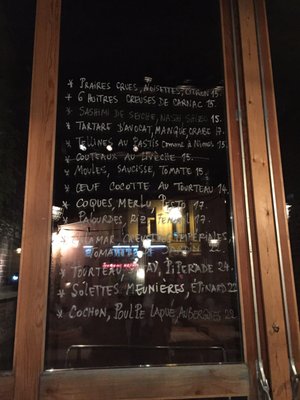 * PRAIRES CRUES, NOISETTES, CITRON 15.
+ 6 HUÎTRES CREUSES DE CARNAC 15.
* SASHIMI DE SEICHE, NASHI, SHISO 15.
* TARTARE D'AVOCAT, MANGUE, CRABE 17.
* TELLINES AU PASTIS COMME À NIMES 15.
* COUTEAUX AU LIVÈCHE 15.
* MOULES, SAUCISSE, TOMATE 15.
* ŒUF COCOTTE AU TOURTEAU 14.
* COQUES, MERLU, PESTO 17.
* PALOURDES, RIZ 17.
* CALAMAR
* TOURTEAU, PIPERADE 24.
* SOLETTES MEUNIÈRES, EPINARD 22
* COCHON, POULPE LAQUÉ, AUBERGINES 22